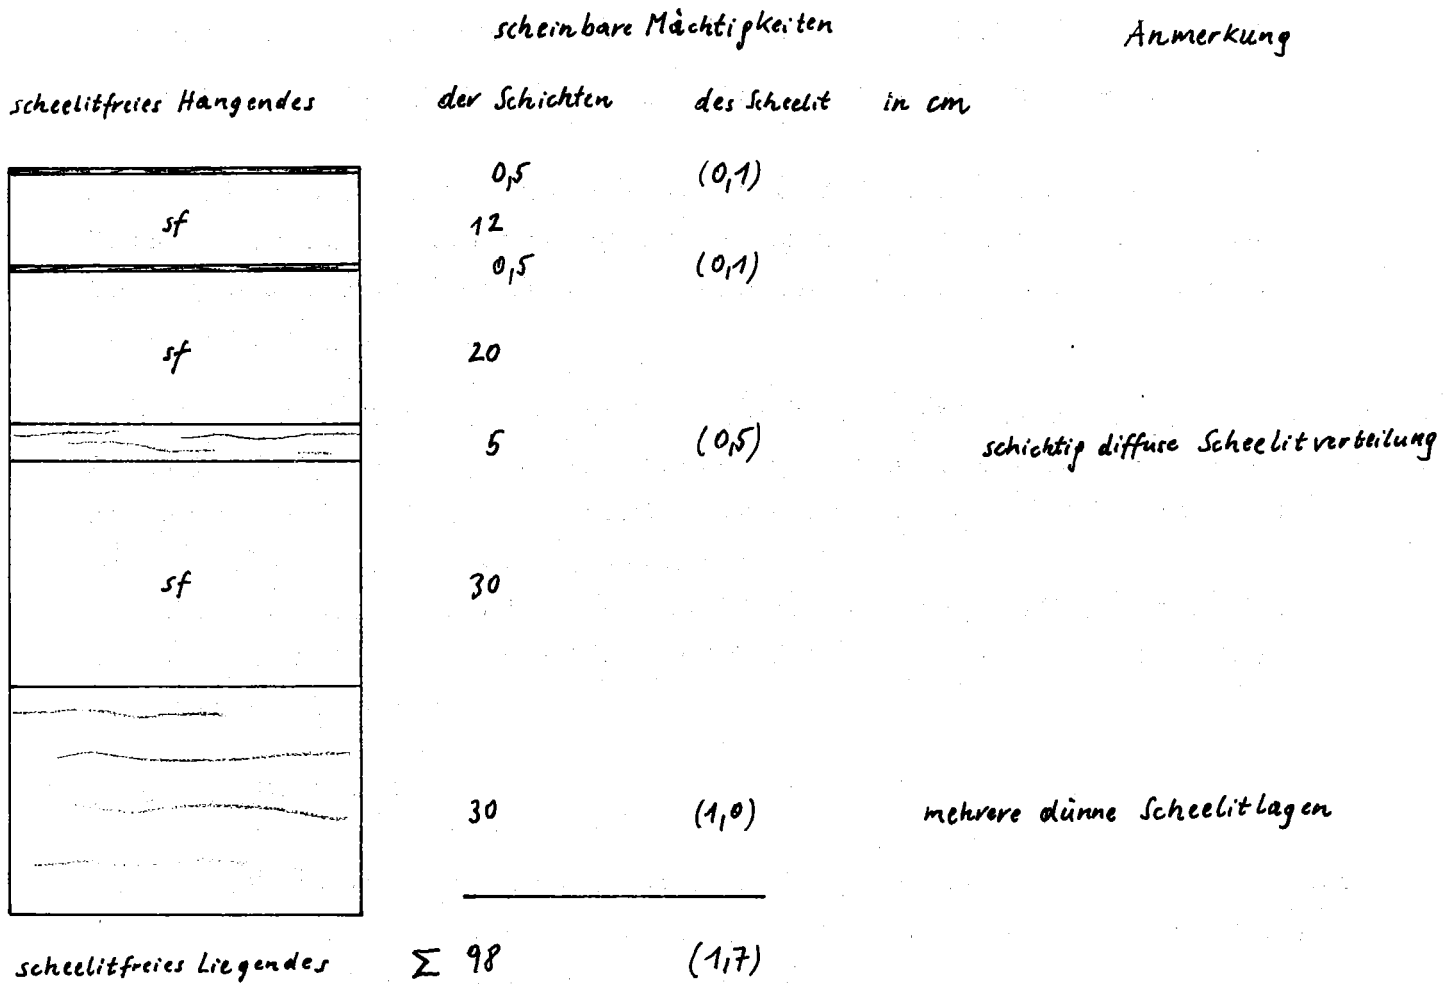 scheinbare Mächtigkeiten Anmerkung
scheelitfreies Hangendes der Schichten des Scheelit in cm
0,5 (0,1)
sf 12
0,5 (0,1)
sf 20
5 (0,5) schichtig diffuse Scheelitverteilung
sf 30
30 (1,0) mehrere dünne Scheelitlagen
scheelitfreies Liegendes Σ 98 (1,7)